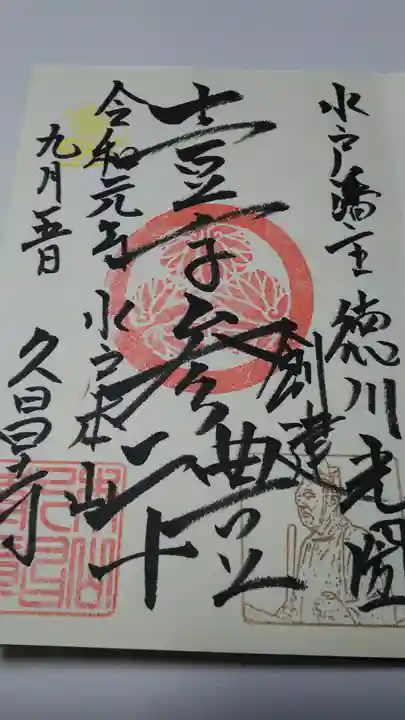 水戸藩主 徳川光圀
創建
壹字参禮
水戸本山
久昌寺
令和元年
九月五日